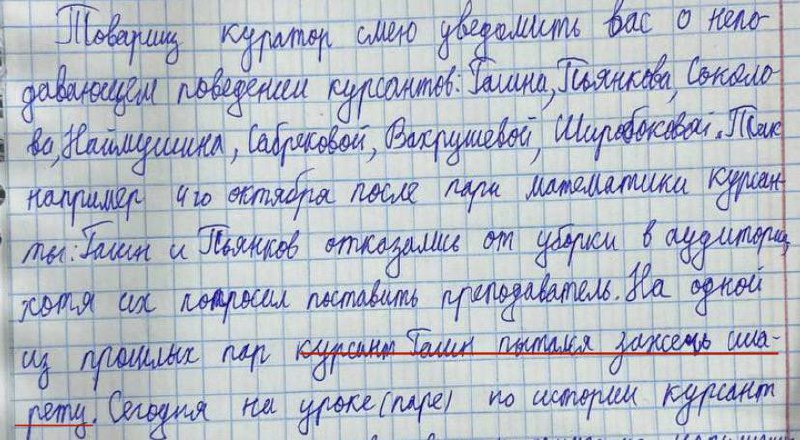 Товарищ куратор смею уведомить вас о непо-
давающем поведении курсантов: Галина, Пьянкова, Соколо-
ва, Наймушина, Сабрековой, Вахрушевой, Широбоковой. Так
например 4го октября после пары математики курсан-
ты: Галин и Пьянков отказались от уборки в аудитории,
хотя их попросил поставить преподаватель. На одной
из прошлых пар курсант Галин пытался зажечь сига-
рету. Сегодня на уроке (паре) по истории курсант